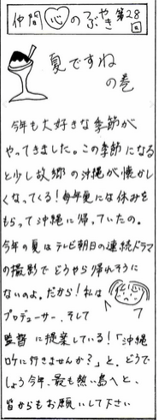 仲間心のつぶやき 第28回
夏ですね
の巻
今年も大好きな季節が
やってきました。この季節になる
と少し故郷の沖縄が懐かし
くなってくる！毎年夏には休みを
もらって沖縄に帰っていたの。
今年の夏はテレビ朝日の連続ドラマ
の撮影でどうやら帰れそうに
ないのよ。だから！私は
プロデューサー、そして
監督に提案している！「沖縄
ロケに行きませんか？」と、どうで
しょう今年、最も熱い島へと、
皆からもお願いして下さい